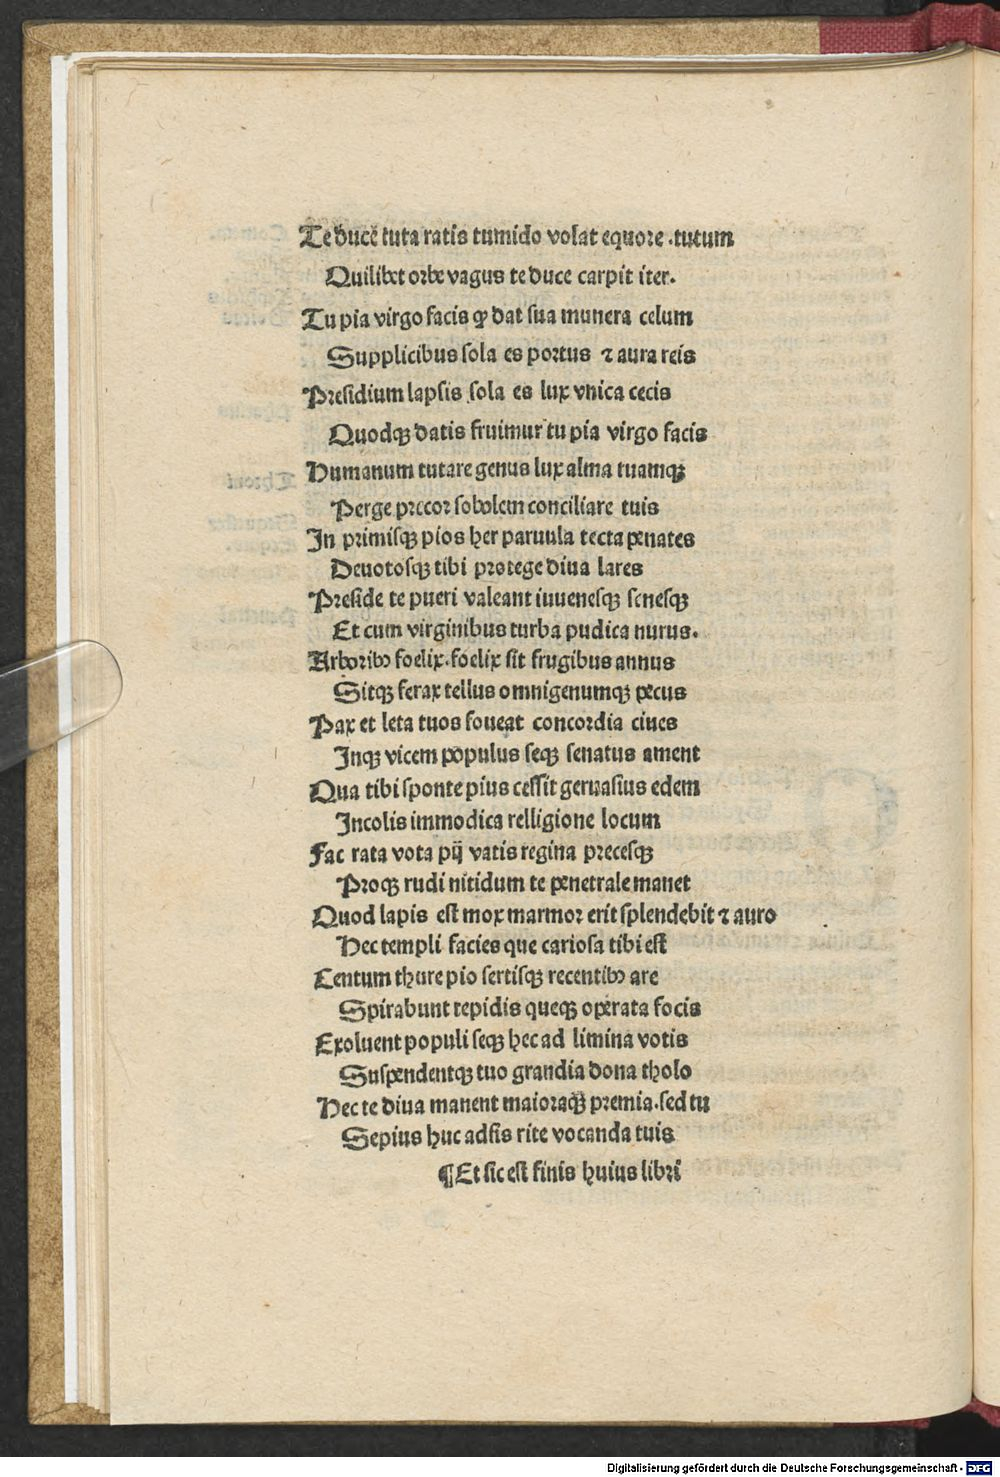 Te ducē tuta ratis tumido volat equore .tutum
Quilibet orbe vagus te duce carpit iter.
Tu pia virgo facis ꝙ dat sua munera celum
Supplicibus sola es portus ⁊ aura reis
Presidium lapsis sola es lux vnica cecis
Quodqꝫ datis fruimur tu pia virgo facis
Humanum tutare genus lux alma tuamqꝫ
Perge precor sobolem conciliare tuis
In primisqꝫ pios her paruula tecta penates
Deuotosqꝫ tibi protege diua lares
Preside te pueri valeant iuuenesqꝫ senesqꝫ
Et cum virginibus turba pudica nurus.
Arboribꝰ foelix.foelix sit frugibus annus
Sitqꝫ ferax tellus omnigenumqꝫ pecus
Pax et leta tuos foueat concordia ciues
Inqꝫ vicem populus seqꝫ senatus ament
Qua tibi sponte pius cessit geruasius edem
Incolis immodica relligione locum
Fac rata vota pij vatis regina precesqꝫ
Proqꝫ rudi nitidum te penetrale manet
Quod lapis est mox marmor erit splendebit ⁊ auro
Hec templi facies que cariosa tibi est
Centum thure pio sertisqꝫ recentibꝰ are
Spirabunt tepidis queqꝫ operata focis
Exoluent populi seqꝫ hec ad limina votis
Suspendentqꝫ tuo grandia dona tholo
Hec te diua manent maioraqꝫ premia.sed tu
Sepius huc adsis rite vocanda tuis
¶Et sic est finis huius libri
Digitalisierung gefördert durch die Deutsche Forschungsgemeinschaft - DFG